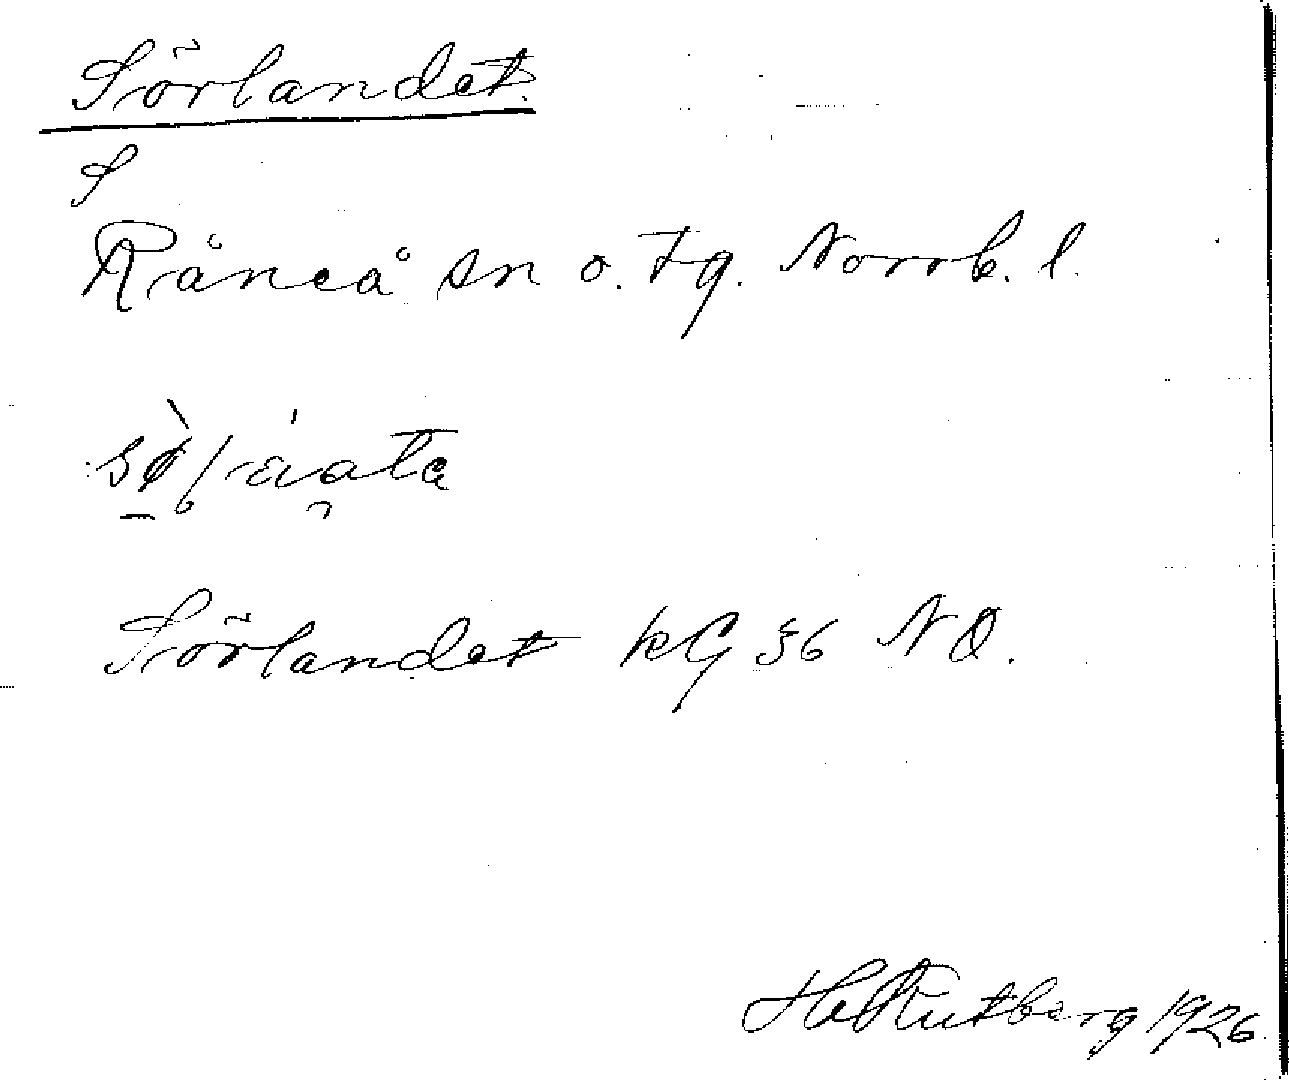 Sörlandet.
S
Råneå sn o. tg. Norrb. l.
Sörlandet kG 36 NO.
Hd Rutberg 1926